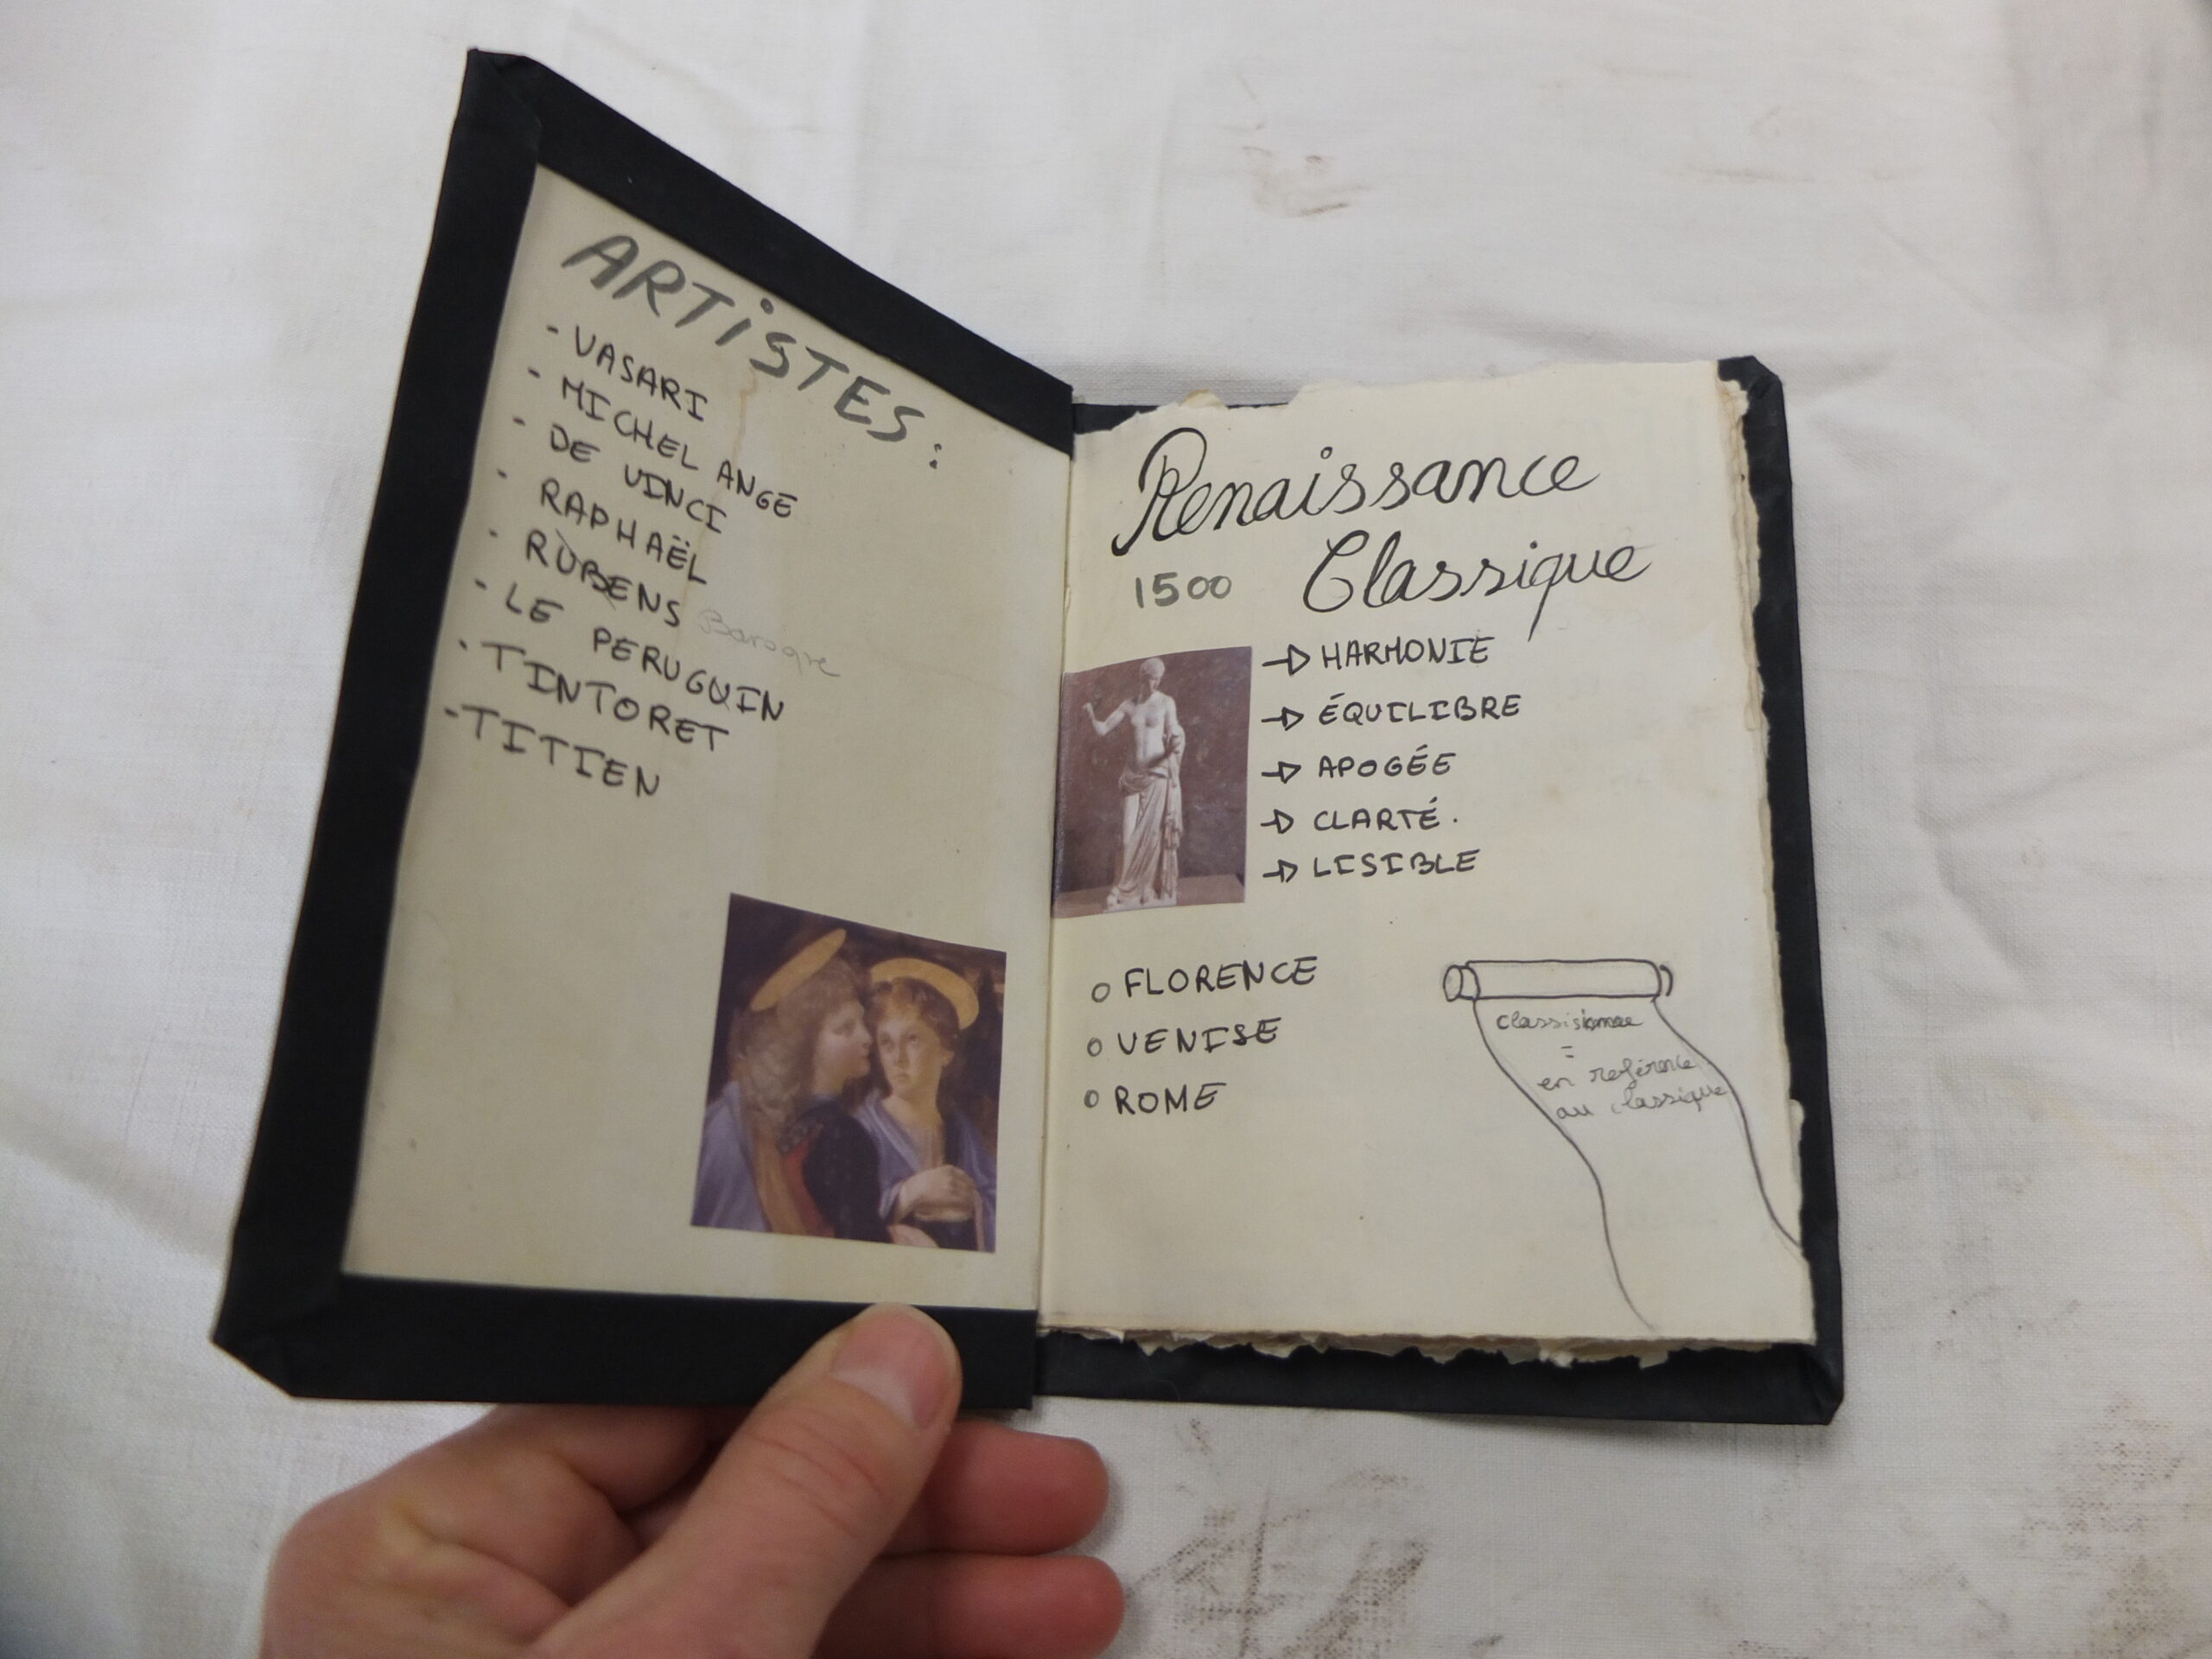 ARTiSTES:
- VASARI
- MICHEL ANGE
- DE VINCI
- RAPHAËL
- RUBENS Baroque
- LE PERUGUIN
- TINTORET
- TITIEN
Renaissance
1500 Classique
→ HARMONIE
→ ÉQUILIBRE
→ APOGÉE
→ CLARTÉ.
→ LISIBLE
o FLORENCE
o VENISE
o ROME
=
en reférence
au classique